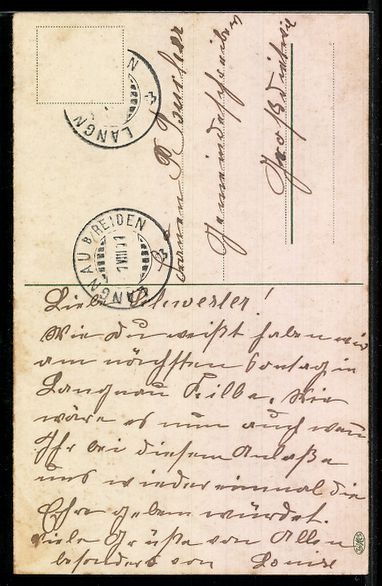 LANGNAU B/REIDEN
LANGN
Familie
Gemeindeschreiber
Großdietwil
Liebe Schwester!
Wie Du weißt haben wir
am nächsten Sontag in
Langnau Kilbe. Wie
wäre es nun auch wenn
Ihr bei diesem Anlaße
uns wieder einmal die
Ehre geben würdet.
Viele Grüße von Allen
besonders von Louise